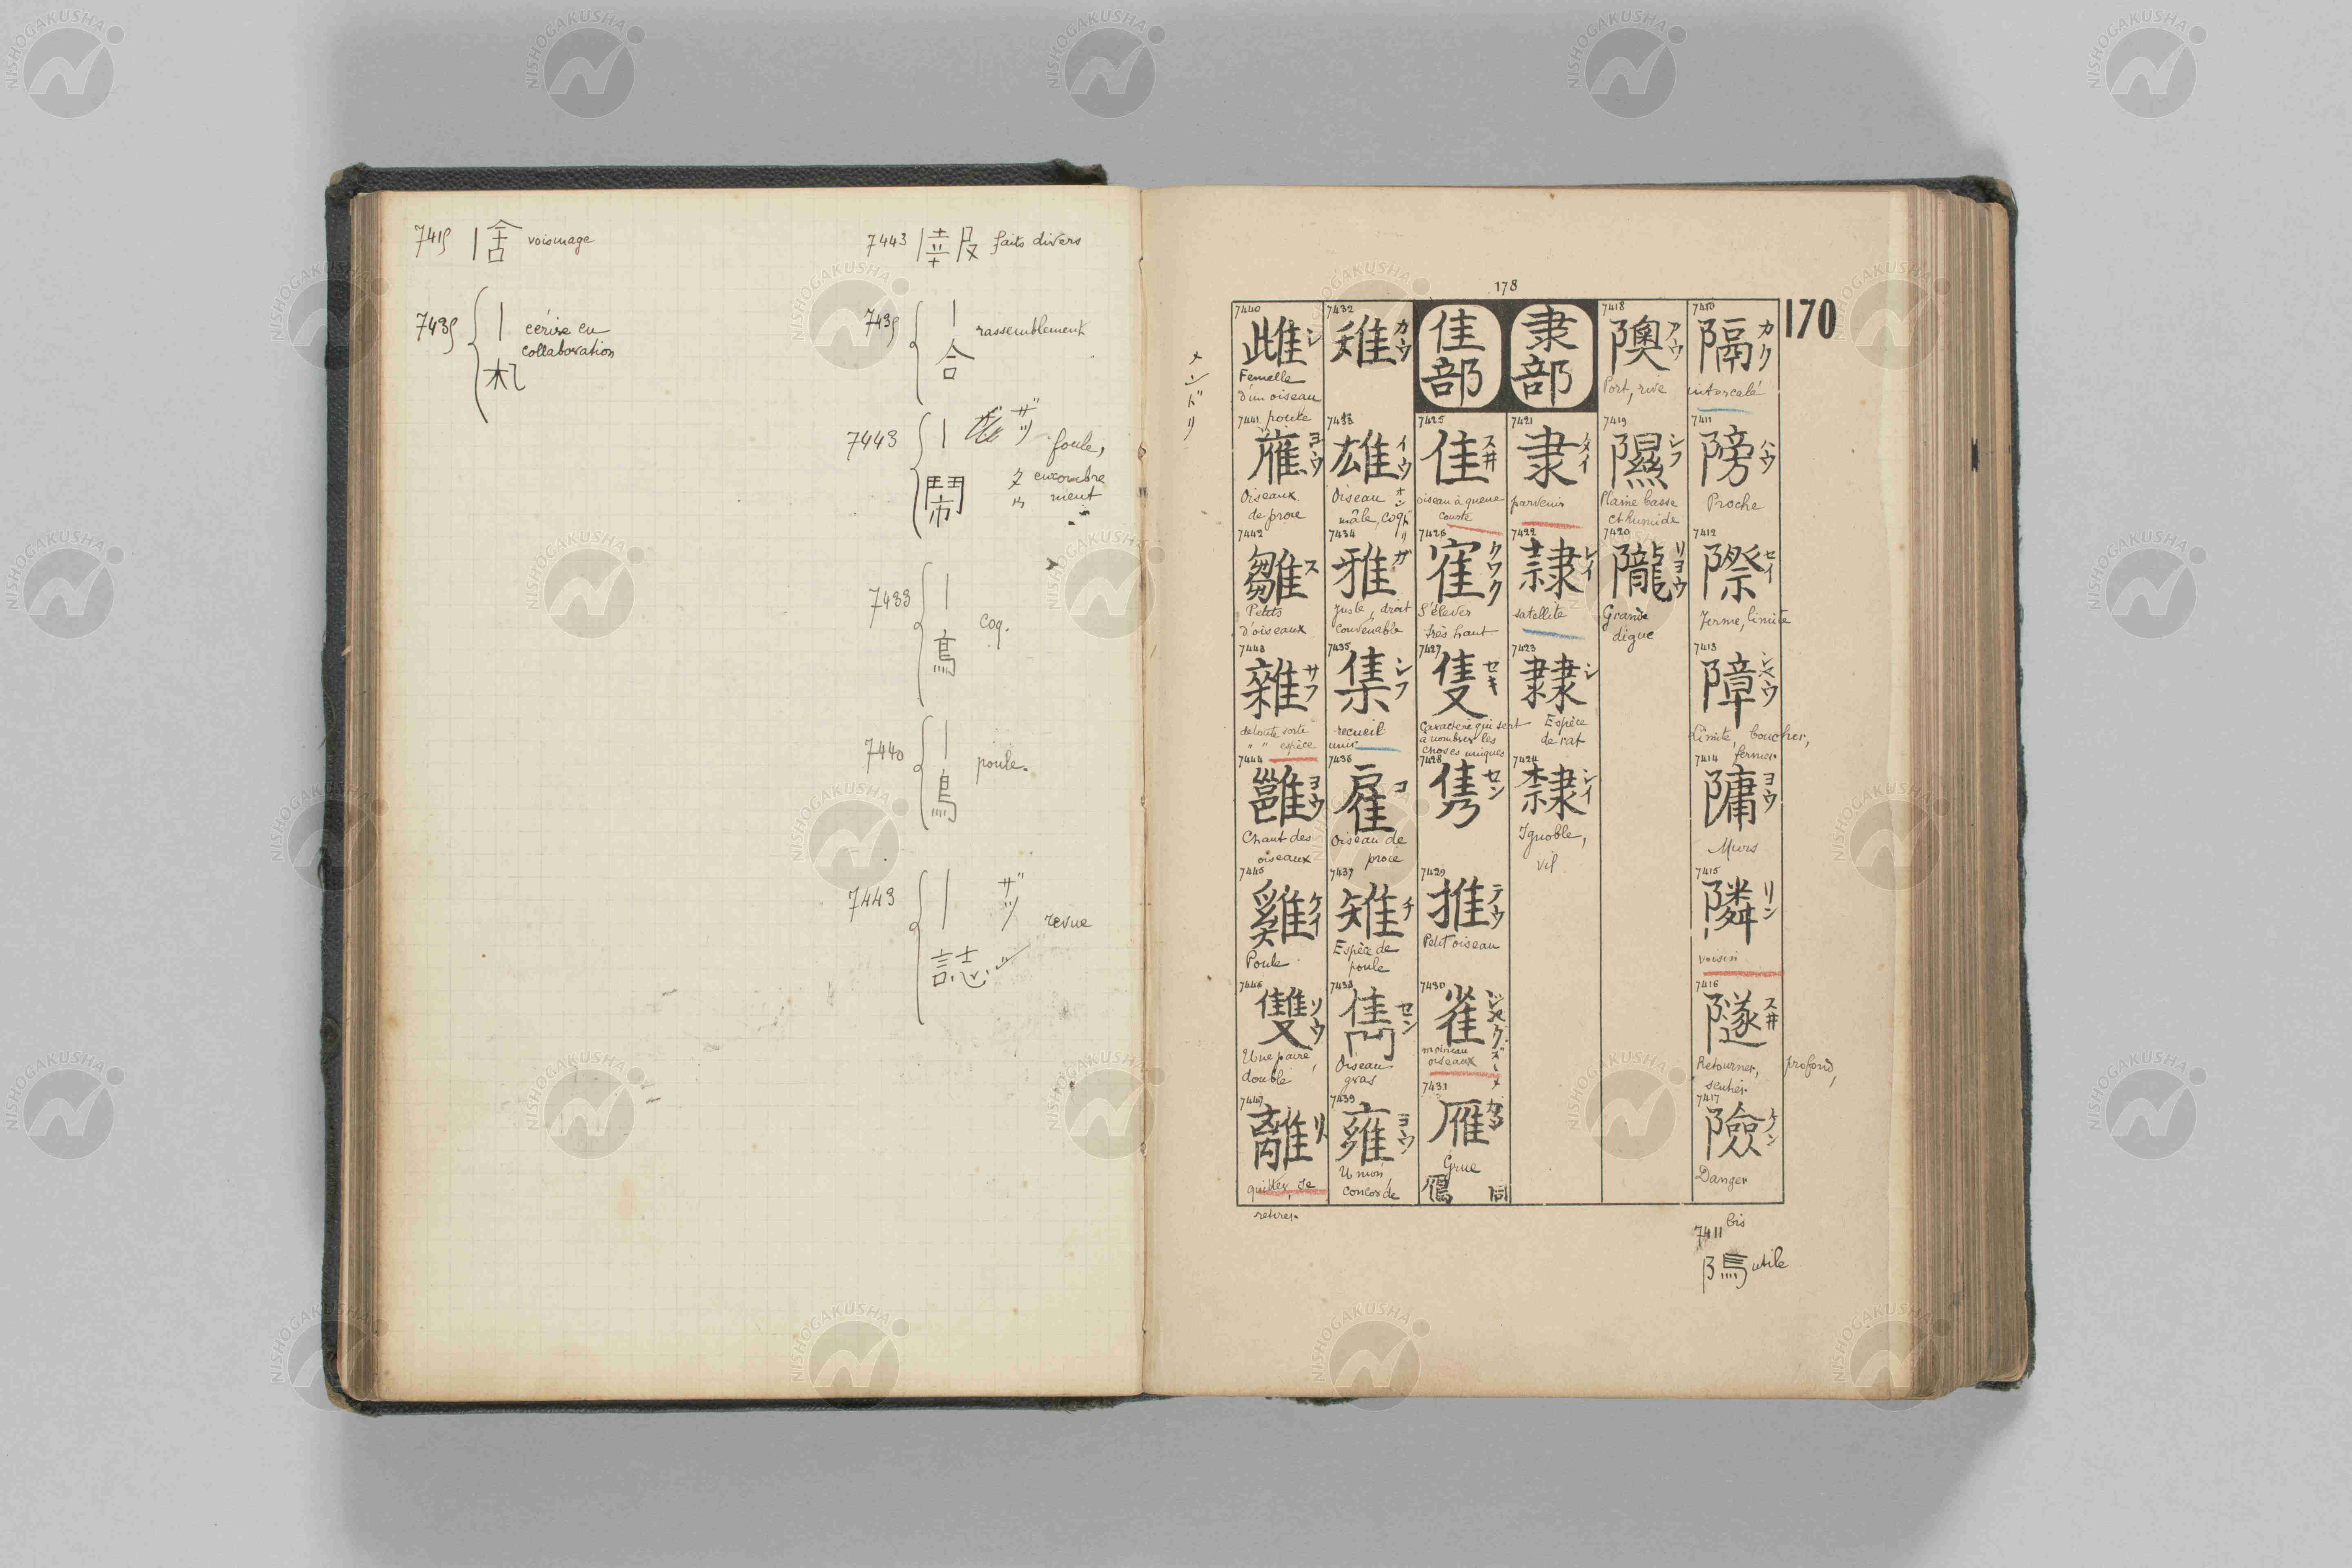 7415 | 舎 voisinage
7435 | 札 écrire en
collaboration
7443 | 報 faits divers
7435 | 合 rassemblement
7443 | 鬧 ザツ foule,
encombre
ment
7433 | 鳥 coq.
7440 | 鳥 poule.
7443 | 誌 ザツ revue
178
170
7410 隔 カク
intercalé
7411 隯 ハウ
Proche
7412 際 セイ
Terme, limite
7413 障 シヤウ
Limite, boucher,
fermer
7414 隴 ヨウ
Murs
7415 隣 リン
voisin
7416 隧 スヰ
Retourner, profond,
sentier
7417 險 ケン
Danger
7418 隩 アウ
Port, rive
7419 隰 シフ
Plaine basse
et humide
7420 隴 リヨウ
Grande
digue
隶部
7421 隶 タイ
parvenir
7422 隷 レイ
satellite
7423 シ
Espèce
de rat
7424 隸 レイ
Ignoble,
vil
隹部
7425 隹 スヰ
oiseau à queue
courte
7426 隺 クワク
S'élever
très haut
7427 隻 セキ
Caractère qui sert
à nombrer les
choses uniques
7428 隽 セン
7429 テウ
Petit oiseau
7430 雀 ジヤク スズメ
moineau
oiseaux
7431 雁 カン
Grue
鴈 同
7432 カウ
7433 雄 イウ
オンドリ
Oiseau
mâle, coq
7434 雅 ガ
Juste, droit
convenable
7435 集 シフ
recueil
unir
7436 雇 コ
Oiseau de
proie
7437 雉 チ
Espèce de
poule
7438 雋 セン
Oiseau
gras
7439 雍 ヨウ
Union,
concorde
7440 雌 シ
メンドリ
Femelle
d'un oiseau
poule
7441 雁 ヨウ
Oiseaux
de proie
7442 雛 ス
Petits
d'oiseaux
7443 雜 サフ
de toute sorte
" " espèce
7444 雝 ヨウ
Chant des
oiseaux
7445 雞 ケイ
Poule
7446 雙 ソウ
Une paire,
double
7447 離 リ
quitter, se
retirer
7411 bis
隝 utile
NISHOGAKUSHA